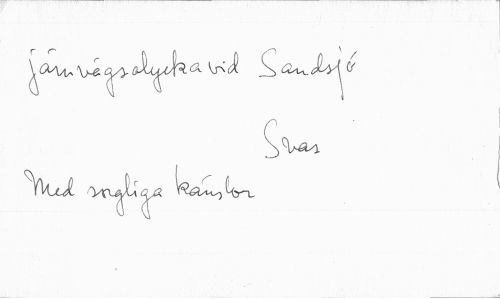 järnvägsolycka vid Sandsjö
Svas
Med sorgliga känslor